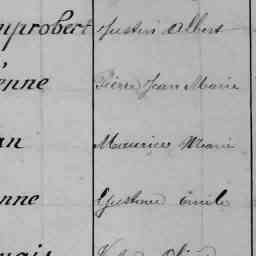 mprobert Justin Albert
enne Pierre Jean Marie
an Maurice Marie
nne Gustave Émile
nais